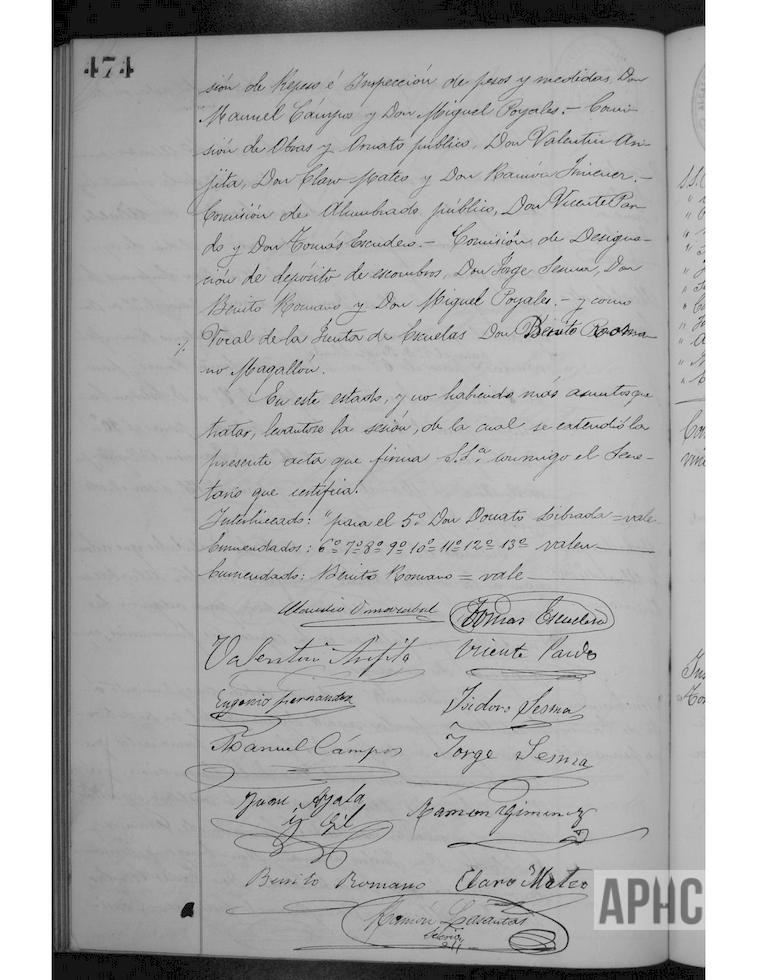 474
sión de Repeso é Inspección de pesos y medidas, Don
Manuel Cámpos y Don Miguel Poyales.- Comi-
sión de Obras y Ornato público, Don Valentin An-
jita, Don Claro Mateo y Don Ramón Jimenez.-
Comisión de Alumbrado público, Don Vicente Par-
do y Don Tomás Escudero.- Comisión de Designa-
ción de depósito de escombros, Don Jorge Sesma, Don
Benito Romano y Don Miguel Poyales.- y como
Vocal de la Junta de Escuelas Don Benito Roma-
no Magallón.
En este estado, y no habiendo más asuntos que
tratar, levantose la sesión, de la cual se extendió la
presente acta que firma S.Sª. conmigo el Secre-
tario que certifica.
Interlineado: "para el 5º Don Donato Librada = vale
Enmendados: 6º 7º 8º 9º 10º 11º 12º 13º valen
Enmendado: Benito Romano = vale
Tomas Escudero
Valentin Anjita Vicente Pardo
Eugenio fernandez Isidoro Sesma
Manuel Cámpos Jorge Sesma
Juan Ayala Ramon Gimenez
y Gil
Benito Romano Claro Mateo
Ramón Lasantas
Srio
APHC